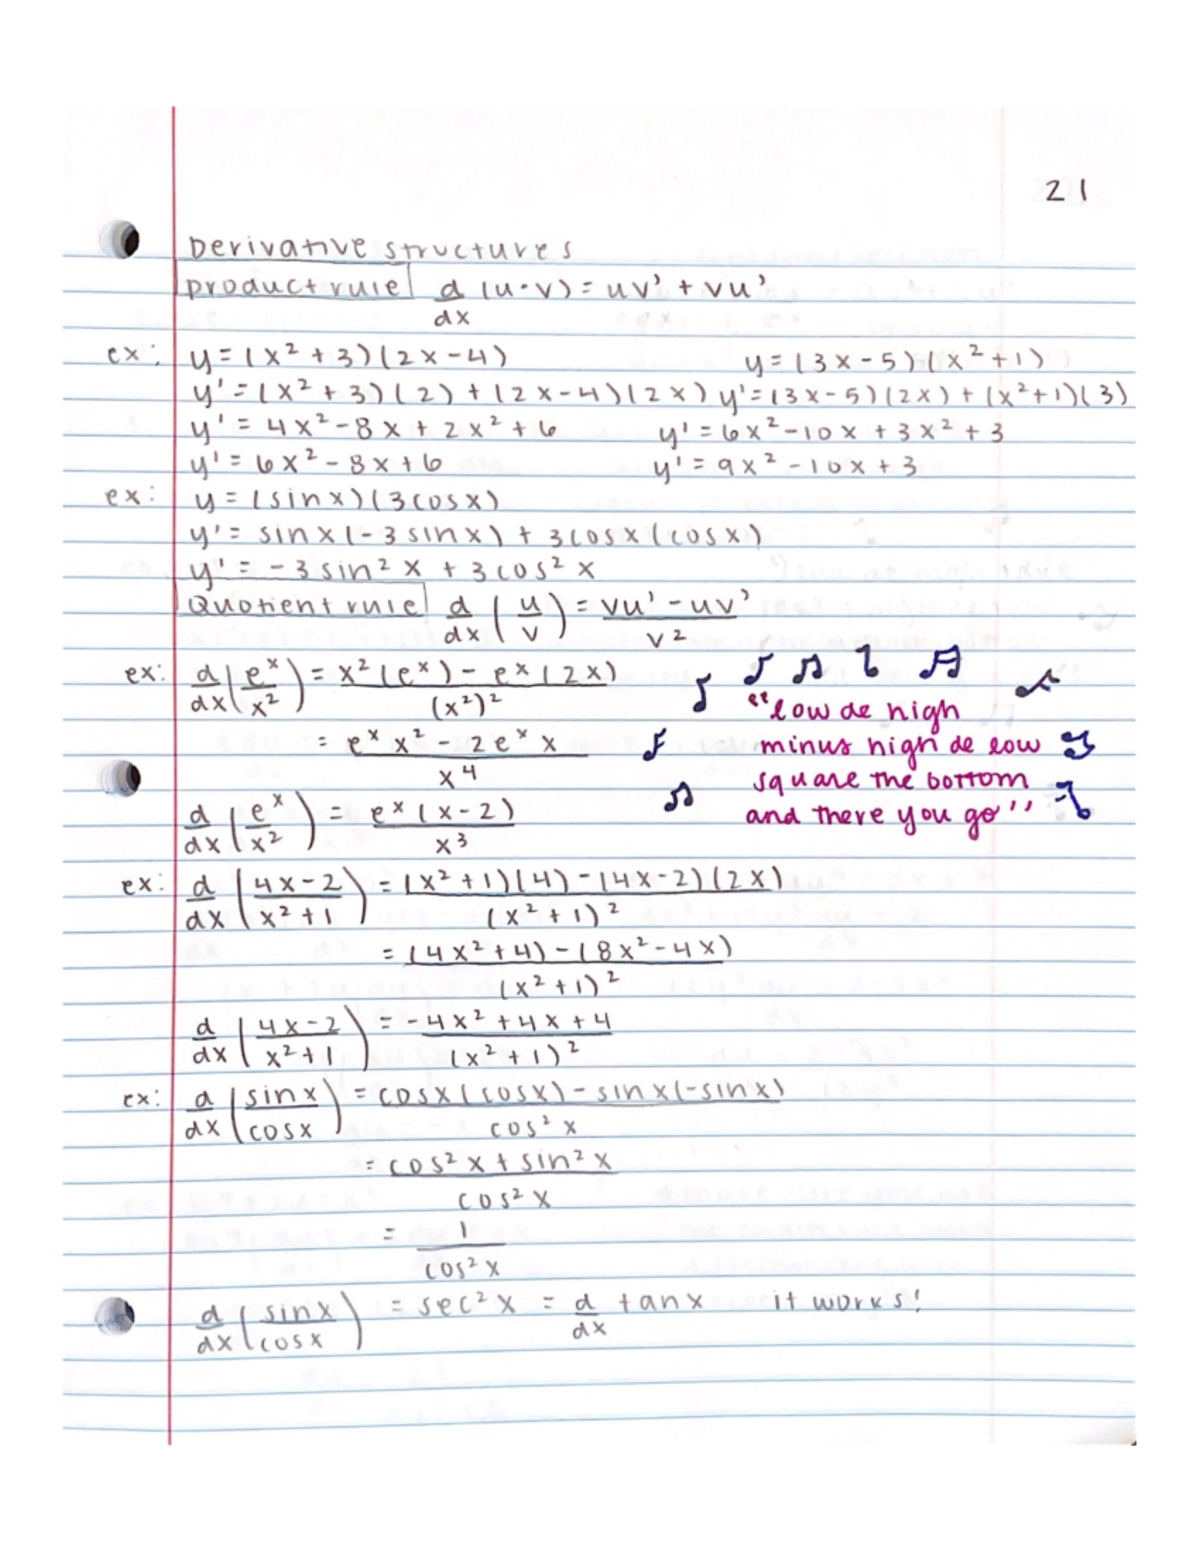 21
Derivative structures
product rule d/dx (u·v) = uv' + vu'
ex: y = (x² + 3)(2x - 4) y = (3x - 5)(x² + 1)
y' = (x² + 3)(2) + (2x - 4)(2x) y' = (3x - 5)(2x) + (x² + 1)(3)
y' = 4x² - 8x + 2x² + 6 y' = 6x² - 10x + 3x² + 3
y' = 6x² - 8x + 6 y' = 9x² - 10x + 3
ex: y = (sinx)(3cosx)
y' = sinx(-3sinx) + 3cosx(cosx)
y' = -3sin²x + 3cos²x
Quotient rule d/dx (u/v) = (vu' - uv')/v²
ex: d/dx (eˣ/x²) = (x²(eˣ) - eˣ(2x))/(x²)²
= (eˣx² - 2eˣx)/x⁴
d/dx (eˣ/x²) = eˣ(x-2)/x³
"low de high
minus high de low
square the bottom
and there you go"
ex: d/dx ((4x-2)/(x²+1)) = ((x²+1)(4) - (4x-2)(2x))/(x²+1)²
= ((4x²+4) - (8x²-4x))/(x²+1)²
d/dx ((4x-2)/(x²+1)) = (-4x² + 4x + 4)/(x²+1)²
ex: d/dx (sinx/cosx) = (cosx(cosx) - sinx(-sinx))/cos²x
= (cos²x + sin²x)/cos²x
= 1/cos²x
d/dx (sinx/cosx) = sec²x = d/dx tanx it works!